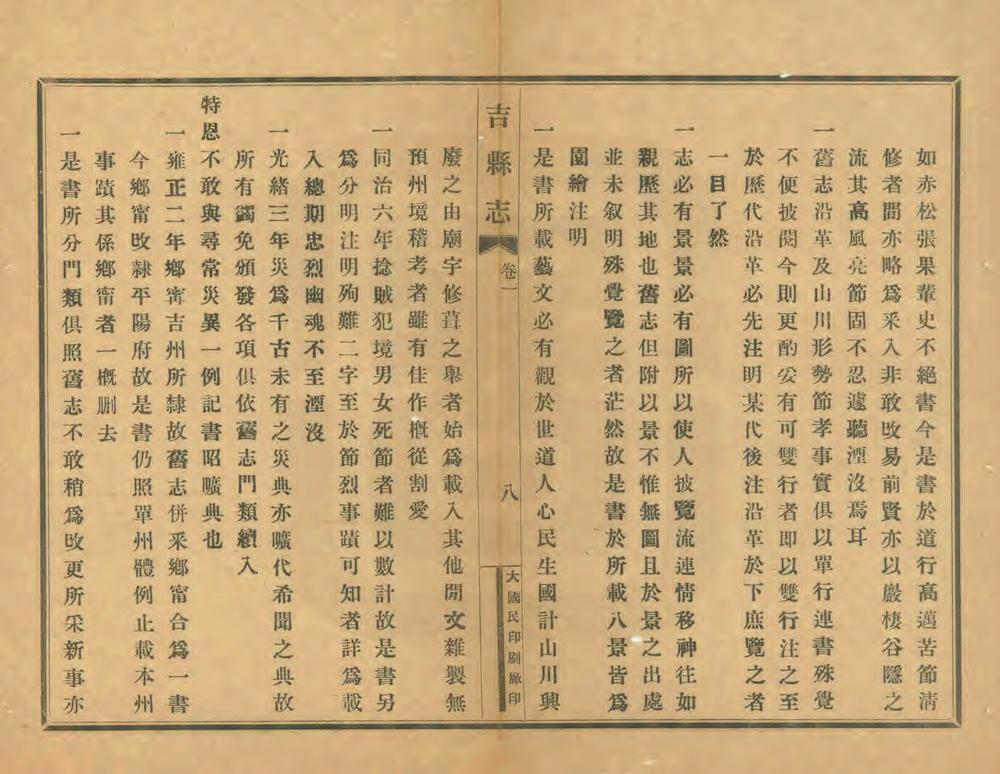 如赤松張果輩史不絕書今是書於道行高邁苦節淸
修者間亦略爲釆入非敢改易前賢亦以嚴棲谷隱之
流其高風亮節固不忍遽聽湮沒焉耳
一舊志沿革及山川形勢節孝事實俱以單行連書殊覺
不便披閱今則更酌妥有可雙行者即以雙行注之至
於歷代沿革必先注明某代後注沿革於下庶覽之者
一目了然
一志必有景景必有圖所以使人披覽流連情移神往如
親歷其地也舊志但附以景不惟無圖且於景之出處
並未叙明殊覺覽之者茫然故是書於所載八景皆爲
圖繪注明
一是書所載藝文必有觀於世道人心民生國計山川興
吉縣志
卷一
八
大國民印刷廠印
廢之由廟宇修葺之舉者始爲載入其他閒文雜製無
預州境稽考者雖有佳作槪從割愛
一同治六年捻賊犯境男女死節者難以數計故是書另
爲分明注明殉難二字至於節烈事蹟可知者詳爲載
入總期忠烈幽魂不至湮沒
一光緒三年災爲千古未有之災典亦曠代希聞之典故
所有蠲免頒發各項俱依舊志門類續入
特恩不敢與尋常災異一例記書昭曠典也
一雍正二年鄉甯吉州所隸故舊志併釆鄉甯合爲一書
今鄉甯改隸平陽府故是書仍照單州體例止載本州
事蹟其係鄉甯者一槪删去
一是書所分門類俱照舊志不敢稍爲改更所采新事亦